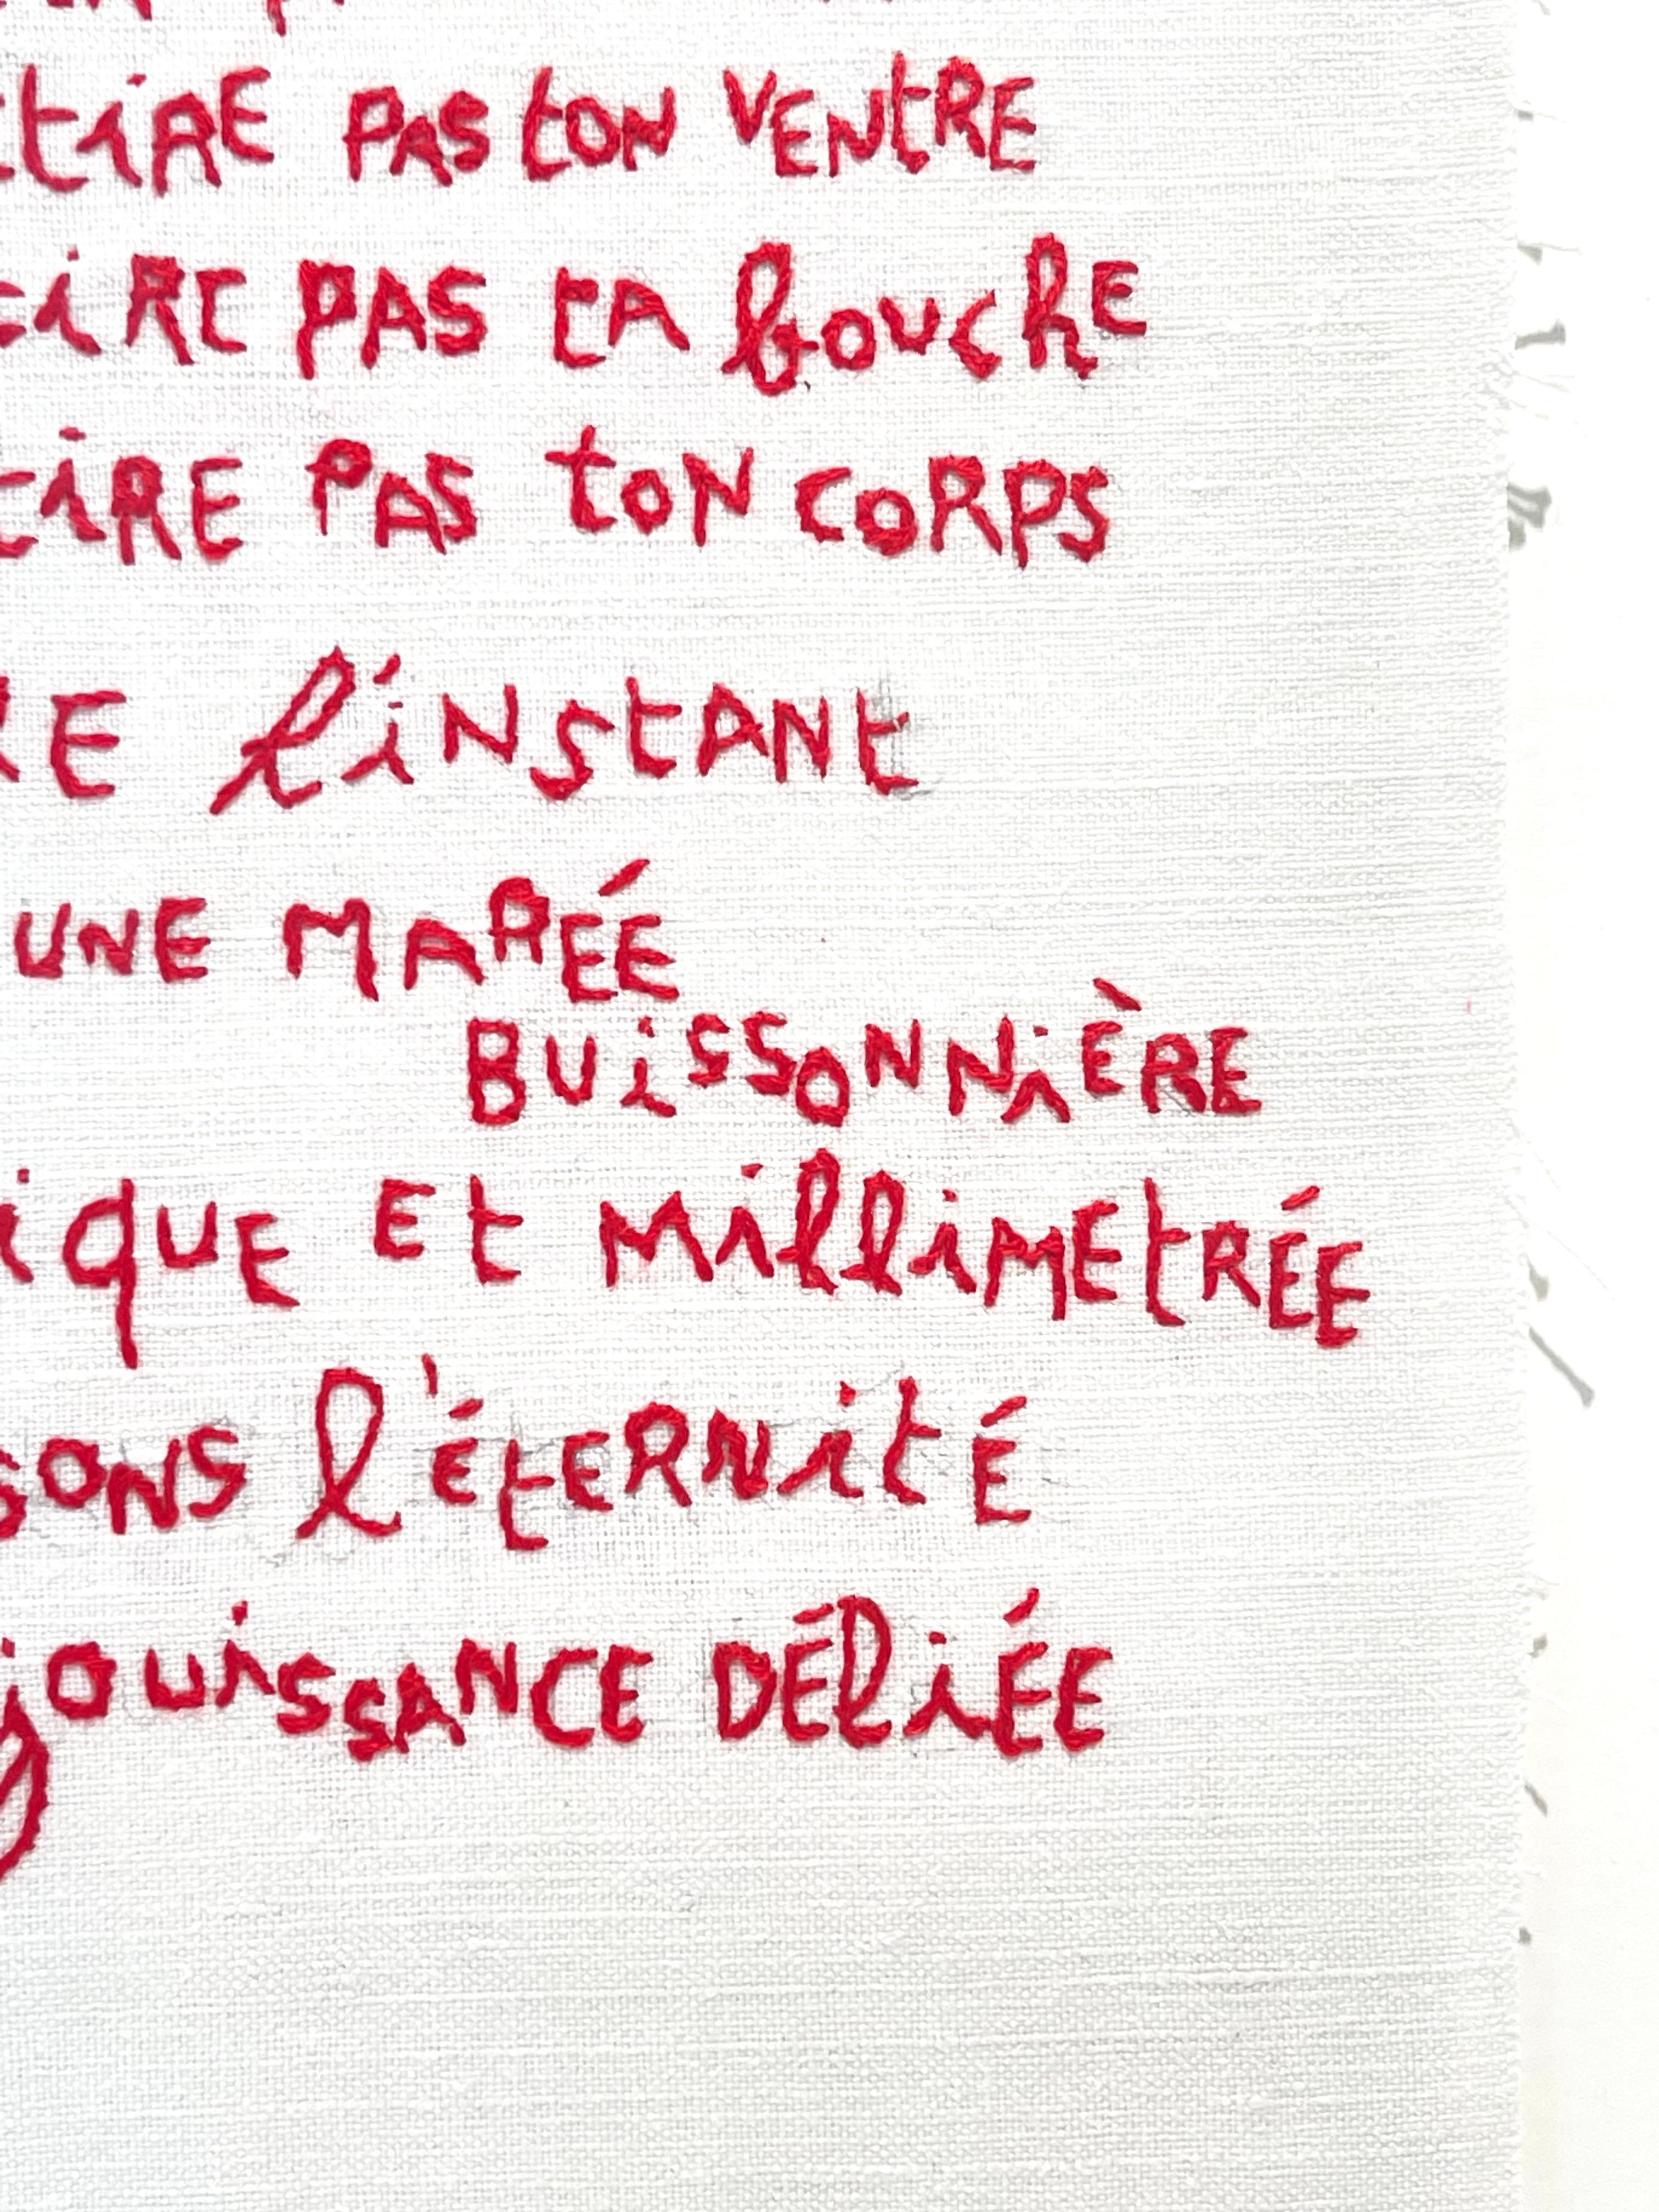 tiRE PAS tON VENtRE
tiRE PAS tA bouchE
tiRE PAS tON CORPS
l'iNStANt
UNE MARÉE
BUiSSONNiÈRE
iQUE Et MilliMEtRÉE
SONS l'ÉtERNitÉ
jouiSSANCE DÉliÉE